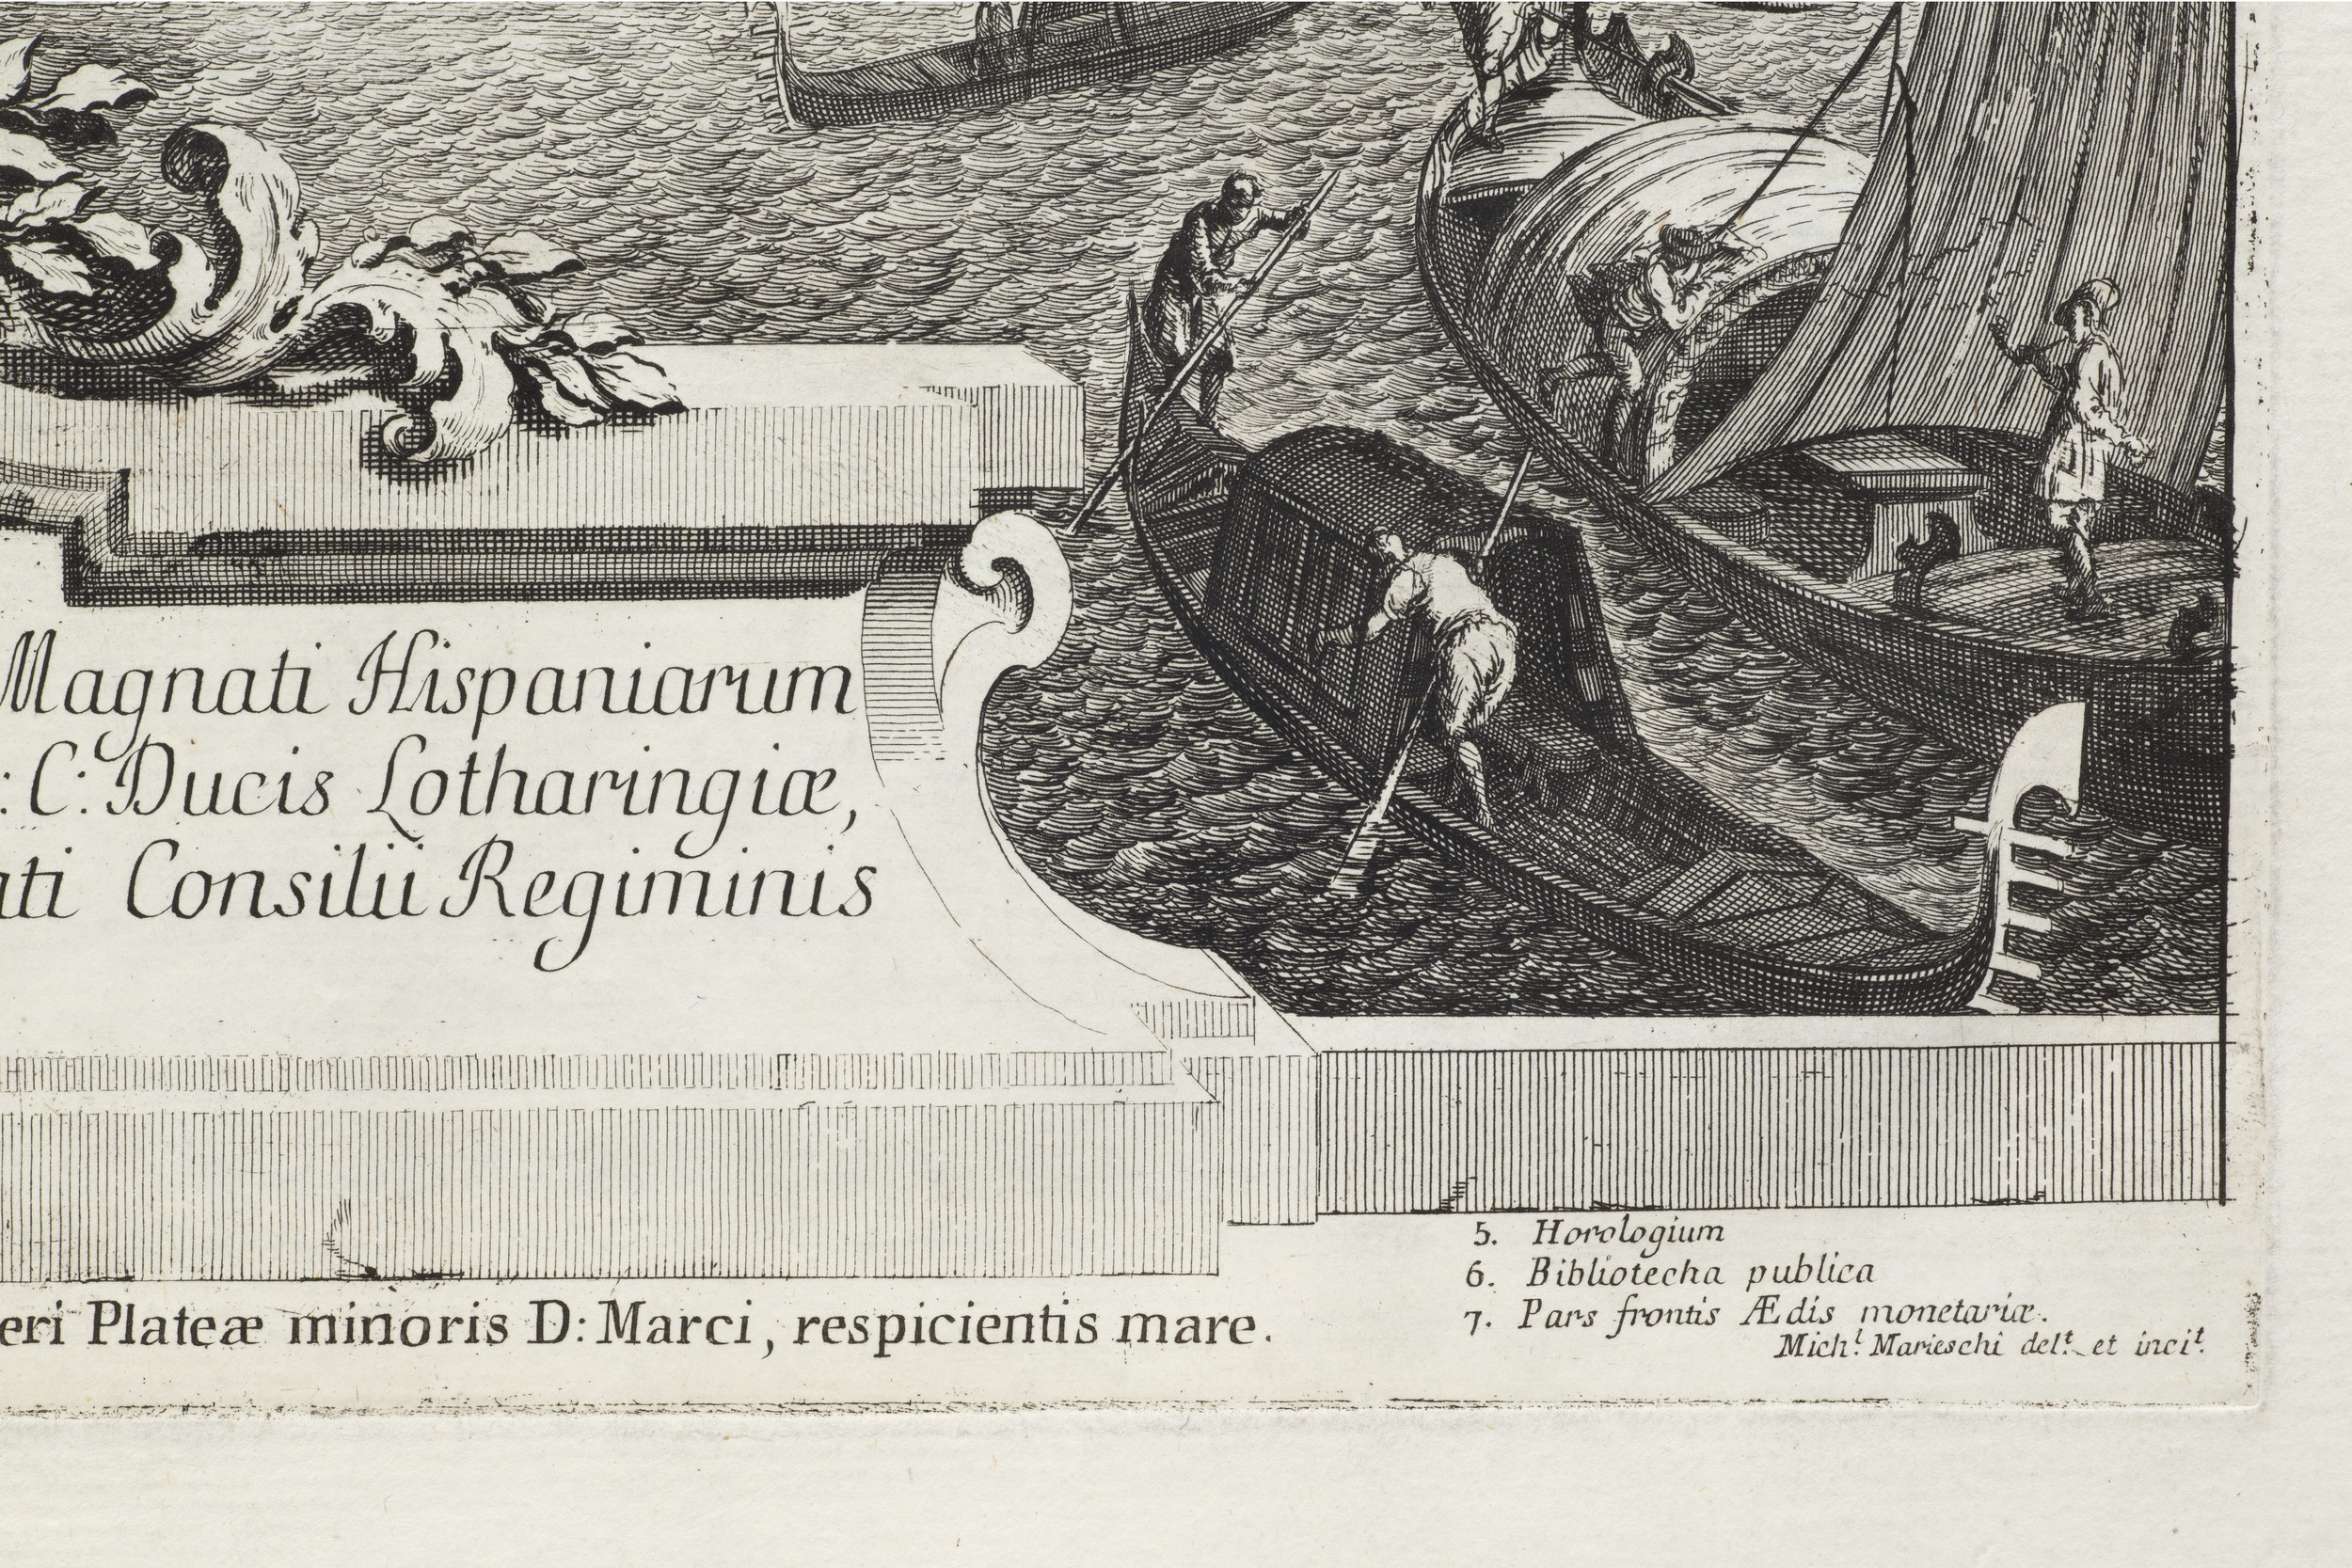 Magnati Hispaniarum
: C: Ducis Lotharingiæ,
ati Consilii Regiminis
eri Plateæ minoris D: Marci, respicientis mare.
5. Horologium
6. Bibliotecha publica
7. Pars frontis Ædis monetariæ.
Mich.l Marieschi del.t et inci.t